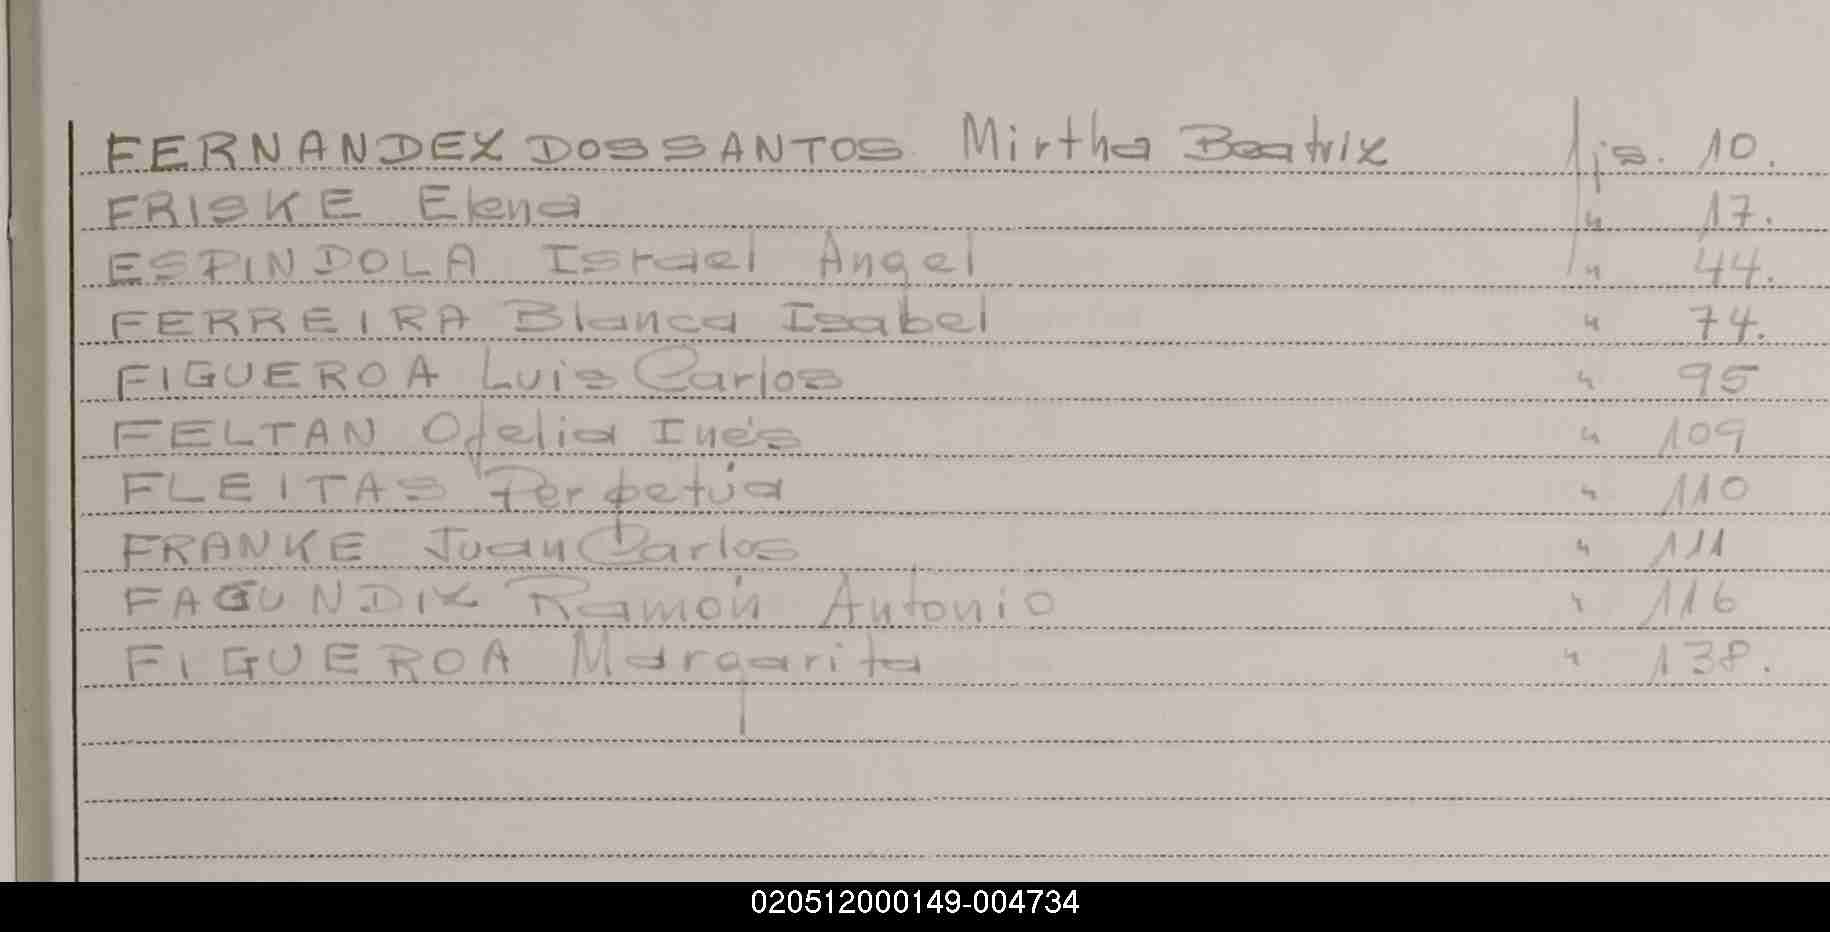 FERNANDEZ DOS SANTOS Mirtha Beatriz fjs. 10.
FRISKE Elena " 17.
ESPINDOLA Israel Angel " 44.
FERREIRA Blanca Isabel " 74.
FIGUEROA Luis Carlos " 95
FELTAN Ofelia Inés " 109
FLEITAS Perpetúa " 110
FRANKE Juan Carlos " 111
FAGUNDIZ Ramón Antonio " 116
FIGUEROA Margarita " 138.
020512000149-004734